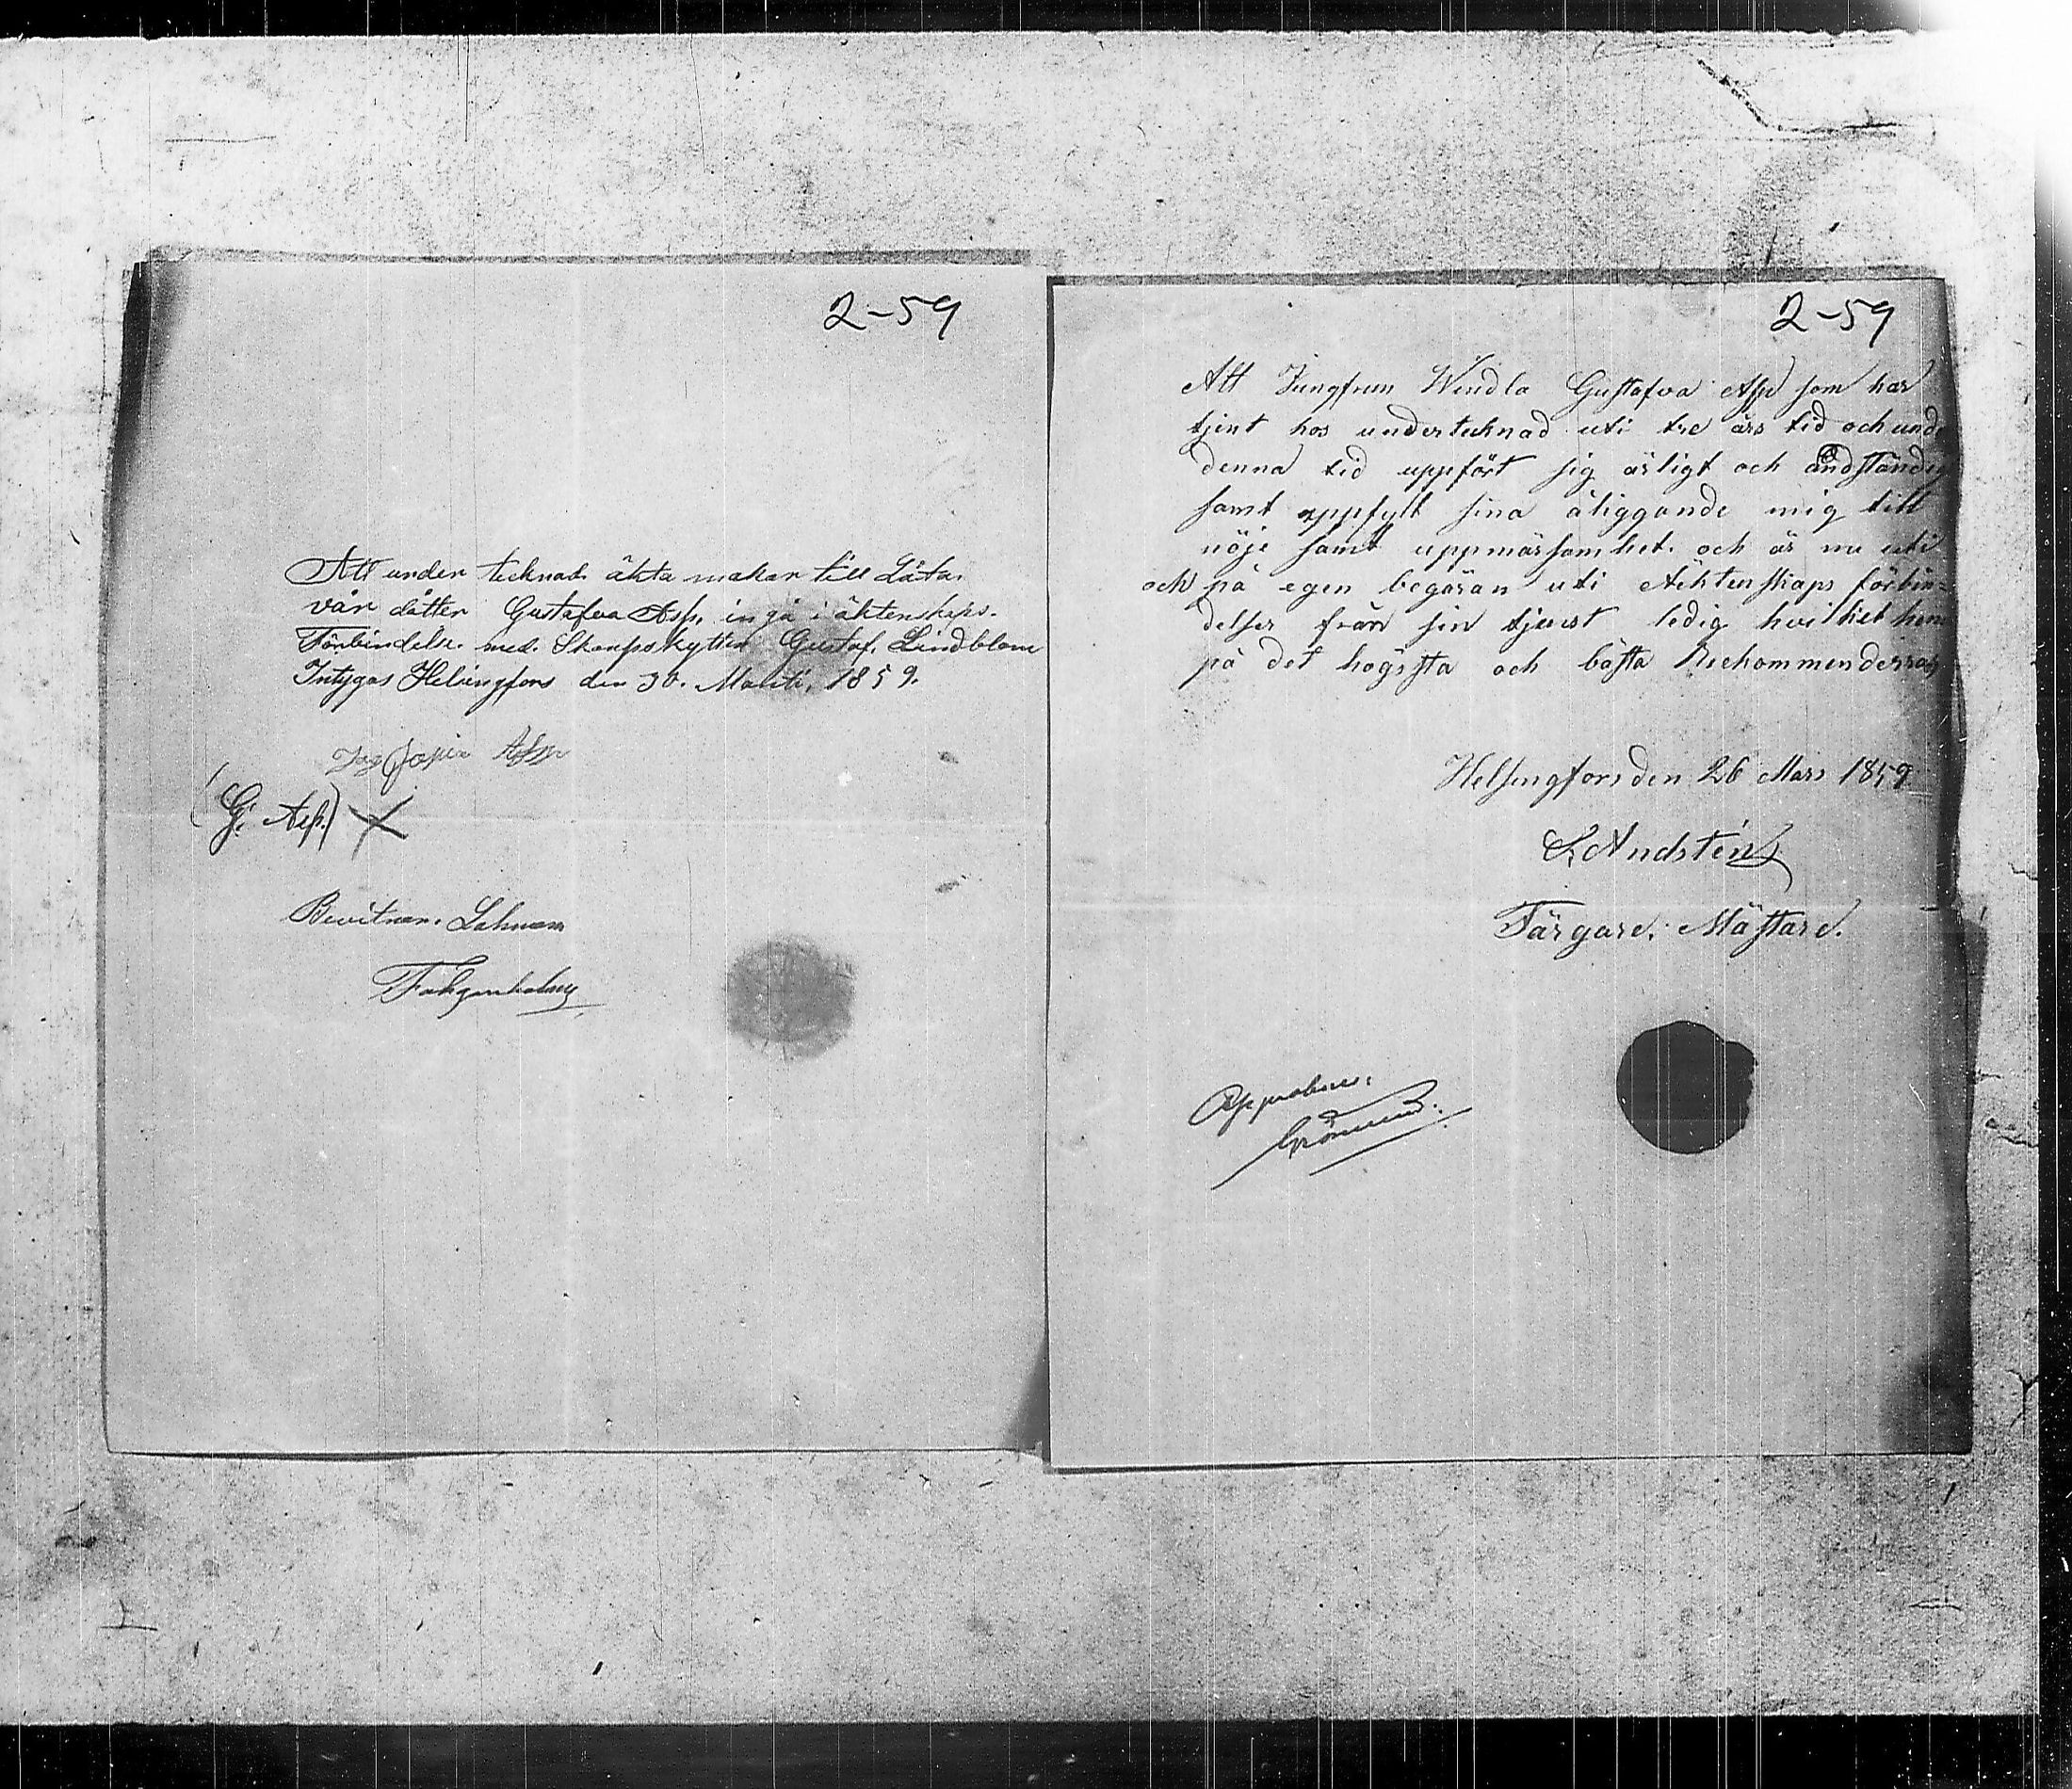 2-59
Att under tecknat äkta makar till Låta.
vår dåtter Gustafva Asp, ingå i äktenskaps.
Förbindelse. med. Skarpskytten Gustaf. Lindblom
Intygas Helsingfors den 30. Martii, 1859.
Jag Sofia Asp
(G. Asp.) X
Bevitnar.
2-59
Att Jungfrun Wendla Gustafva Asp som har
tjent hos undertecknad uti tre års tid och unde
denna tid uppfört sig ärligt och andständig
samt uppfylt sina åliggande mig till
nöje samt uppmärsamhet. och är nu uti
och på egen begäran uti Äktenskaps förbin=
delser från sin tjenst ledig hvilket hen
på det högssta och bästa Reckommenderras
Helsingfors den 26 Mars 1859
Andstén
Färgare. Mästare.
Approberas.